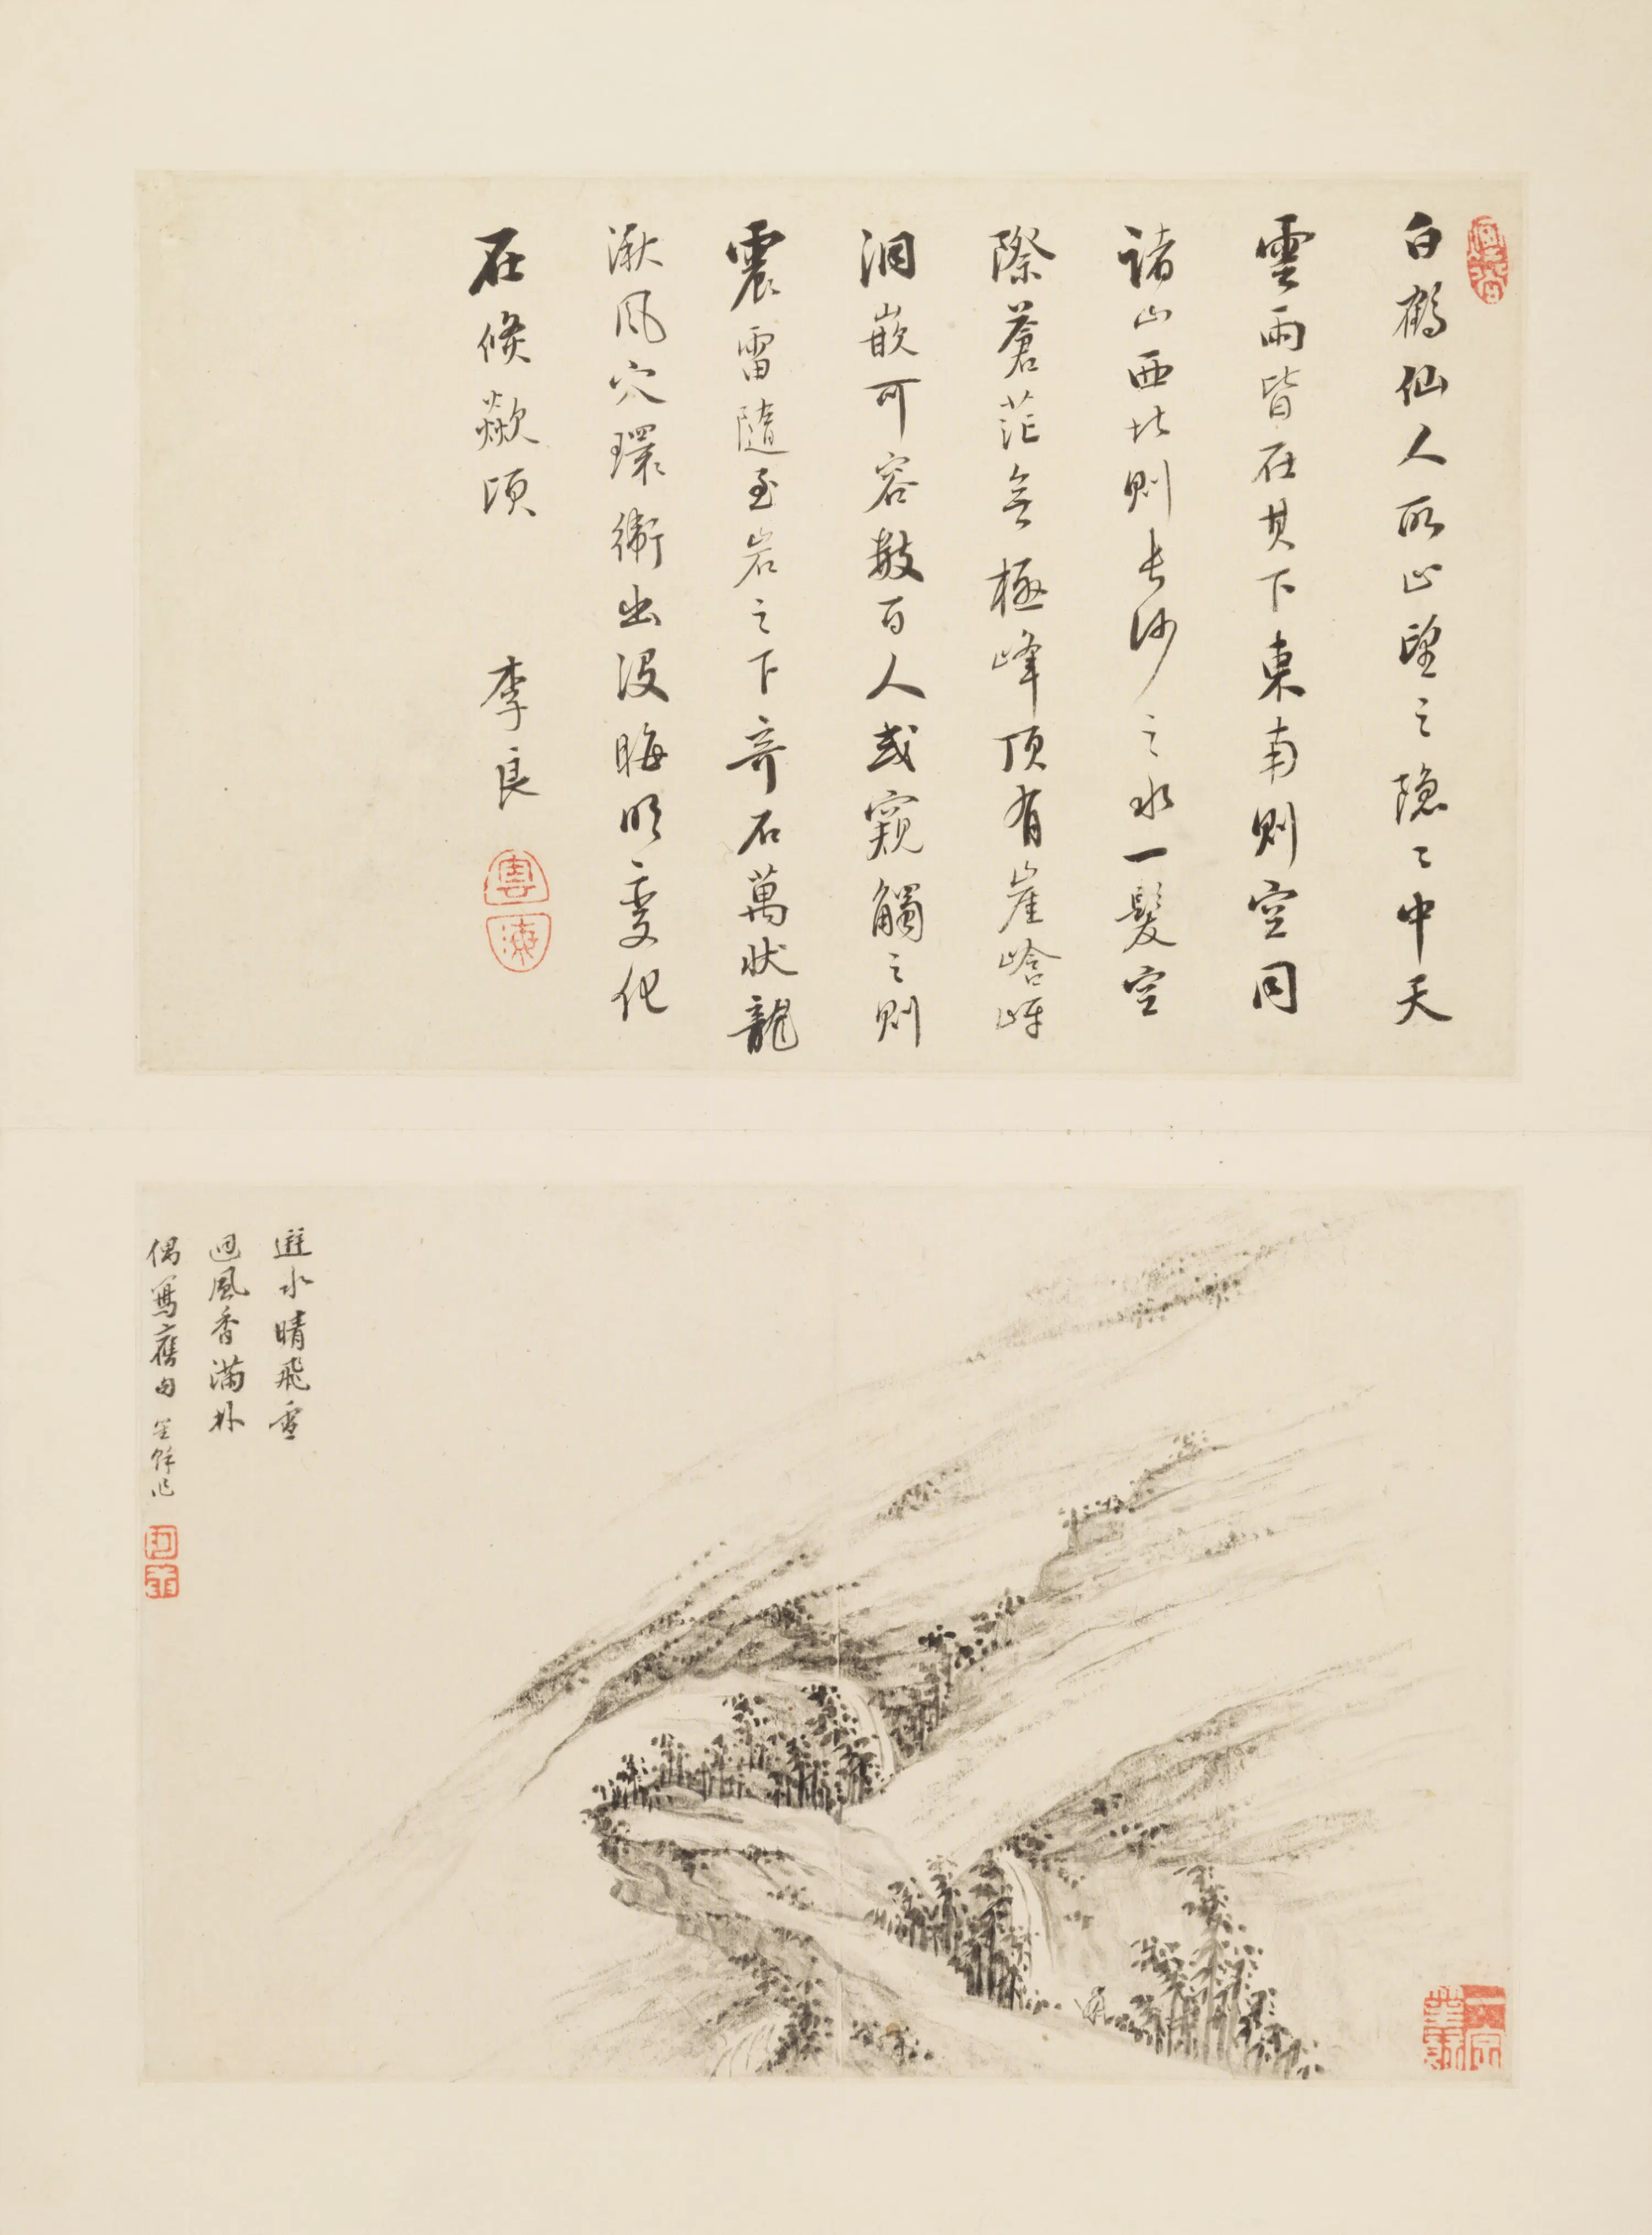 白鶴仙人所止望之隐〻中天
雲雨皆在其下東南則空同
諸山西北則長沙之水一髮空
際蒼茫無極峰頂有崖㟏岈
洞嵌可容數百人或窺觸之則
震雷隨至岩之下奇石萬狀龍
湫風穴環衛出沒晦明變化
在倏歘頃
李良
避水晴飛雪
迴風香滿林
偶寫舊句